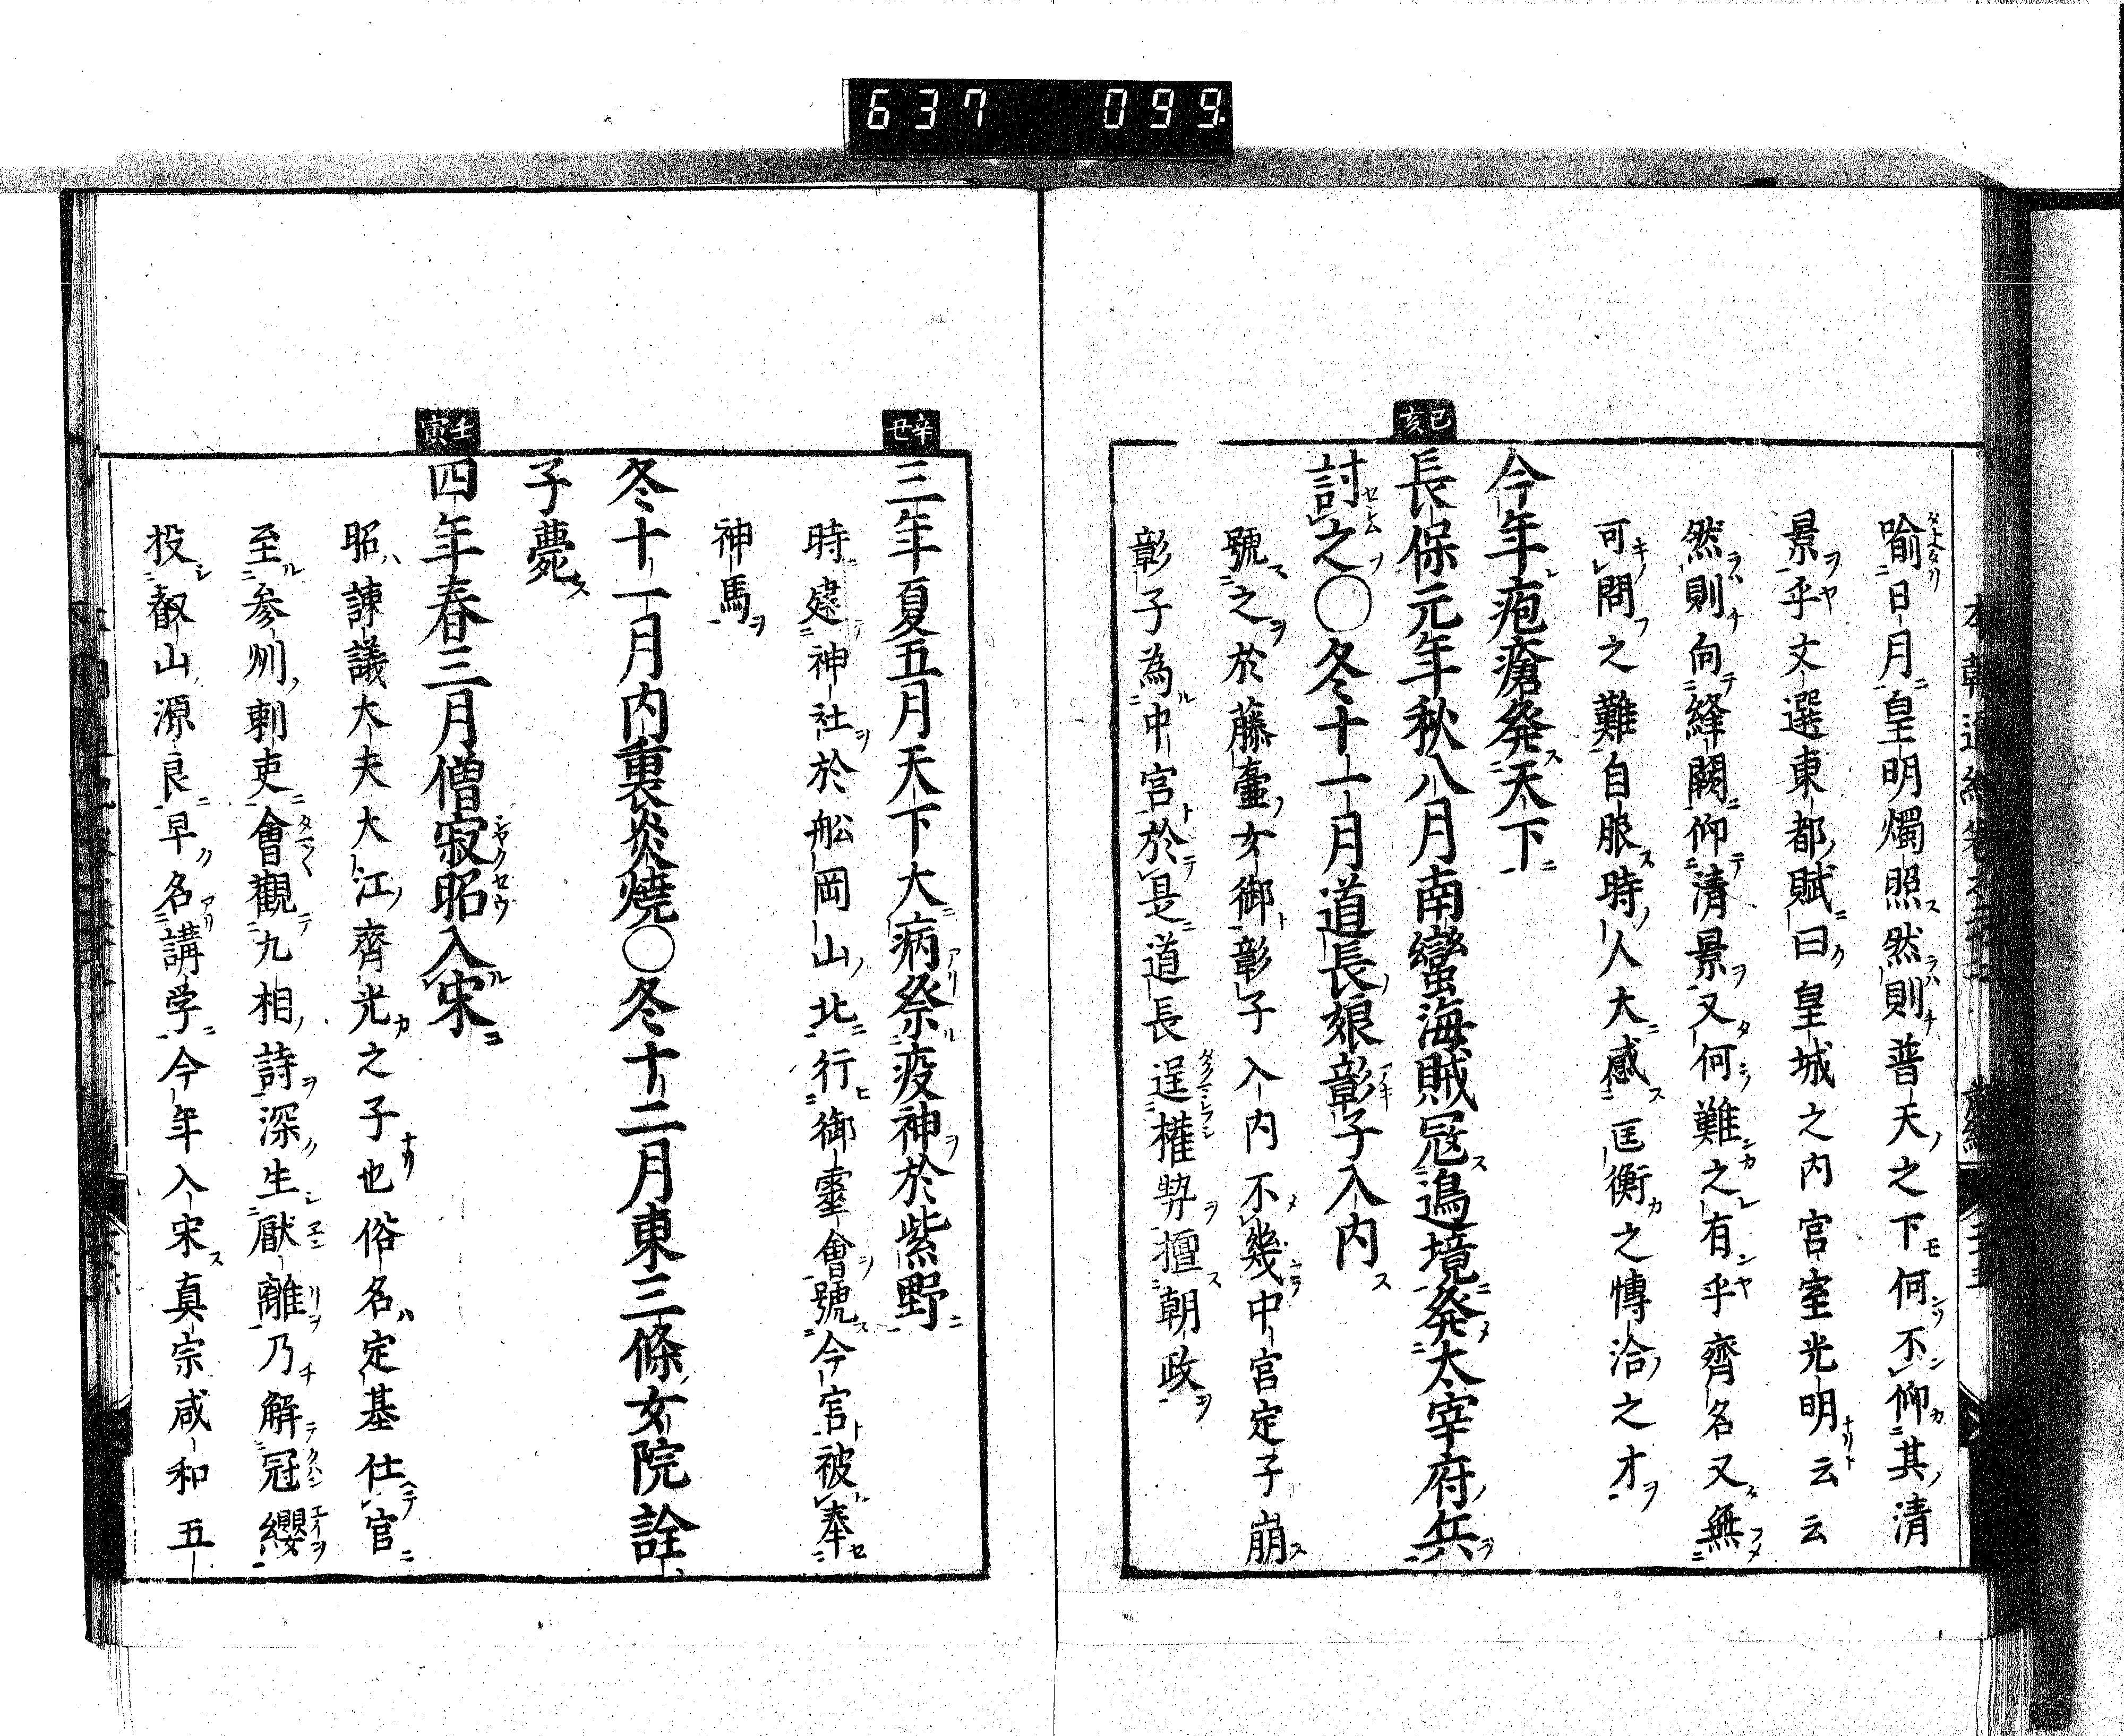 637 099
喻日月皇明燭照然則普天之下何不仰其清
景乎文選東都賦曰皇城之内宮室光明云云
然則向絳闕仰清景又何難之有乎齊名又無
可問之難自服時人大感匡衡之博洽之才
今年疱瘡発天下
己亥
長保元年秋八月南蠻海賊冦邉境発太宰府兵
討之○冬十一月道長娘彰子入内
號之於藤壷女御彰子入内不幾中宮定子崩
彰子為中宮於是道長逞權勢擅朝政
辛丑
三年夏五月天下大病祭疫神於紫野
時建神社於舩岡山北行御靈會號今宮被奉
神馬
冬十一月内裏炎燒○冬十二月東三條女院詮
子薨
壬寅
四年春三月僧寂昭入宋
昭諌議大夫大江齊光之子也俗名定基仕官
至参州刺吏會觀九相詩深生厭離乃解冠纓
投叡山源良早名講学今年入宋真宗咸和五